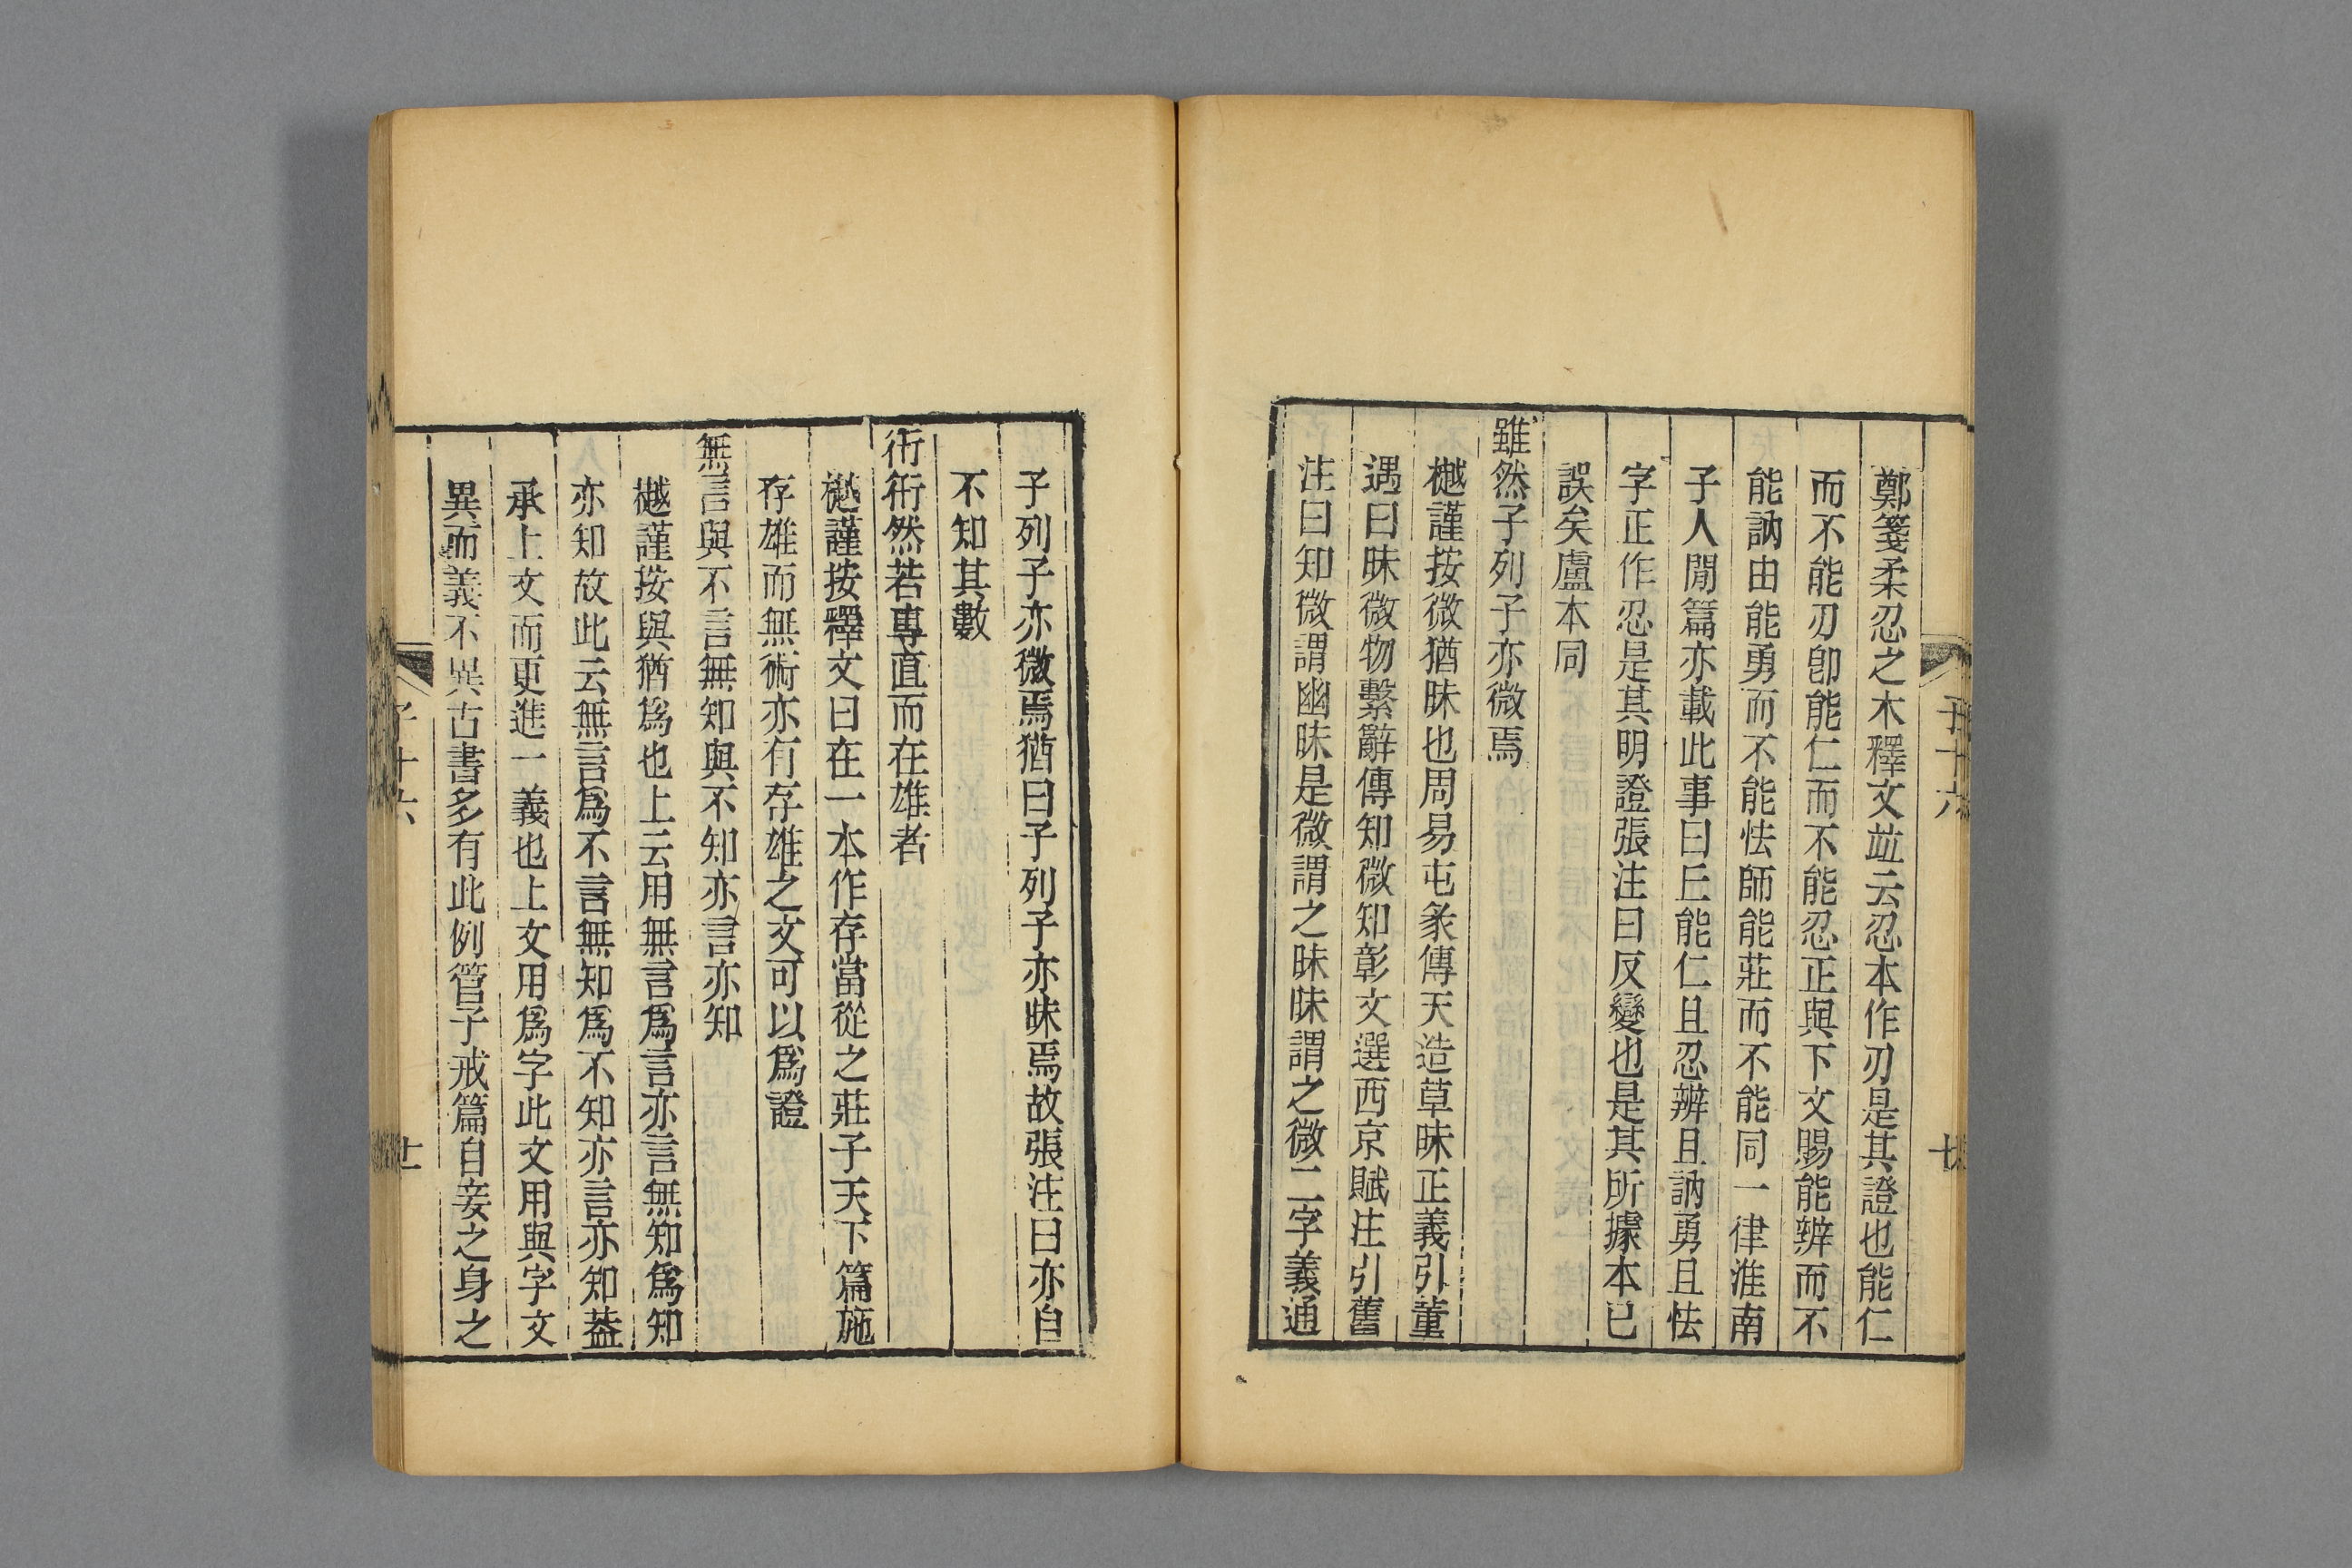 鄭箋柔忍之木釋文竝云忍本作刃是其證也能仁
而不能刃卽能仁而不能忍正與下文賜能辨而不
能訥由能勇而不能怯師能莊而不能同一律淮南
子人閒篇亦載此事曰丘能仁且忍辨且訥勇且怯
字正作忍是其明證張注曰反變也是其所據本已
誤矣盧本同
雖然子列子亦微焉
樾謹按微猶昧也周易屯彖傳天造草昧正義引董
遇曰昧微物繫辭傳知微知彰文選西京賦注引舊
注曰知微謂幽昧是微謂之昧昧謂之微二字義通
子列子亦微焉猶曰子列子亦昧焉故張注曰亦自
不知其數
衎衎然若專直而在雄者
樾謹按釋文曰在一本作存當從之莊子天下篇施
存雄而無術亦有存雄之文可以爲證
無言與不言無知與不知亦言亦知
樾謹按與猶爲也上云用無言爲言亦言無知爲知
亦知故此云無言爲不言無知爲不知亦言亦知葢
承上文而更進一義也上文用爲字此文用與字文
異而義不異古書多有此例管子戒篇自妾之身之
子十六